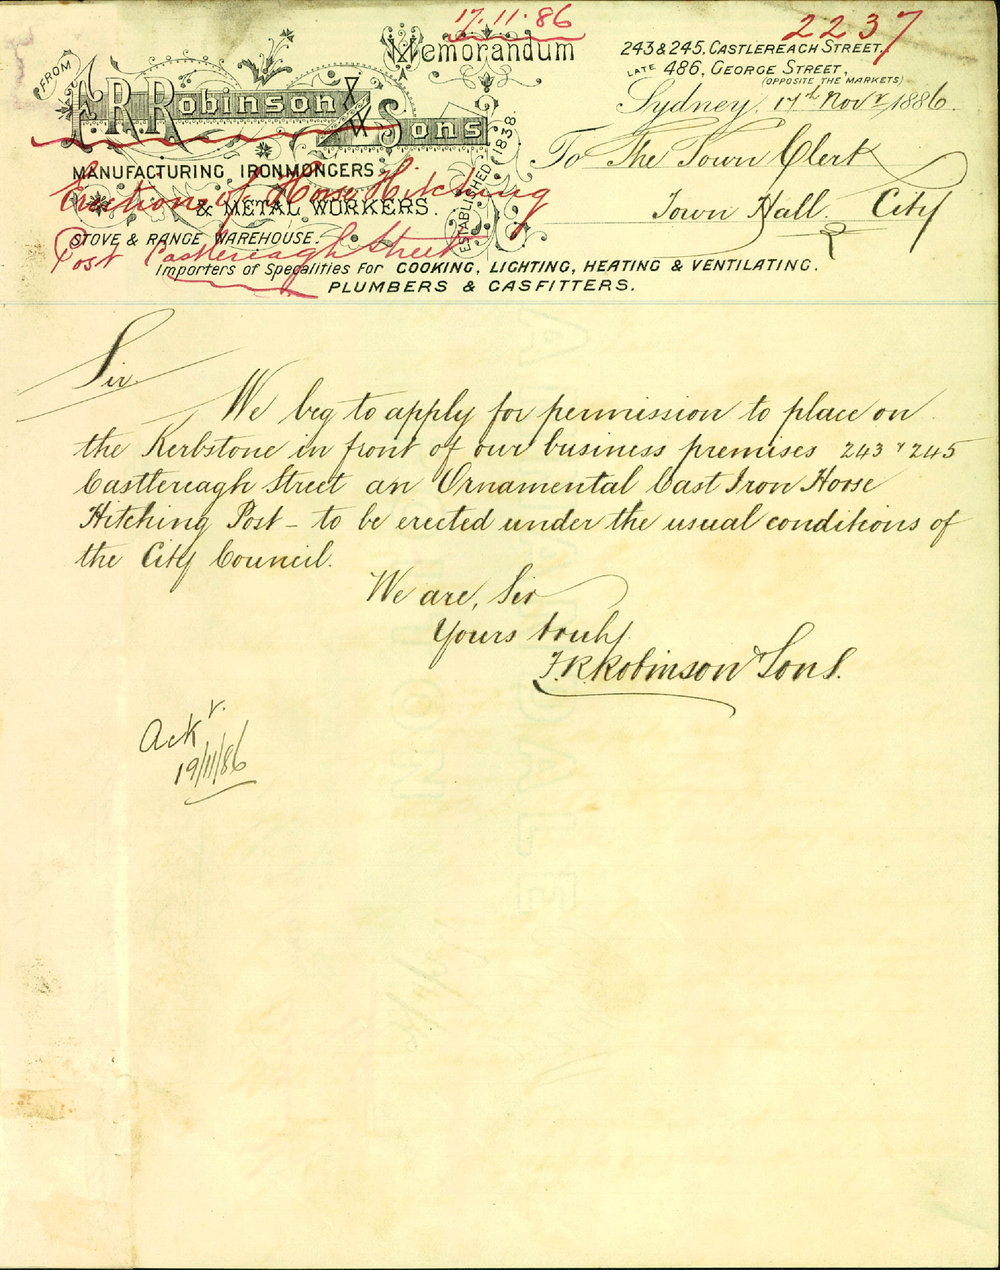 17.11.86
2237
Memorandum
243 & 245, CASTLEREAGH STREET,
LATE 486, GEORGE STREET,
(OPPOSITE THE MARKETS)
FROM
F.R. Robinson & Sons
Sydney, 17th Novr 1886.
ESTABLISHED 1838.
To The Town Clerk
Town Hall. City
MANUFACTURING IRONMONGERS
& METAL WORKERS.
Erection of Horse Hitching
Post Castlereagh Street
STOVE & RANGE WAREHOUSE.
Importers of Specialities For COOKING, LIGHTING, HEATING & VENTILATING.
PLUMBERS & GASFITTERS.
Sir.
We beg to apply for permission to place on
the Kerbstone in front of our business premises 243 & 245
Castlereagh Street an Ornamental Cast Iron Horse
Hitching Post - to be erected under the usual conditions of
the City Council.
We are, Sir
Yours truly
F.R. Robinson & Sons.
Ackr.
19/11/86